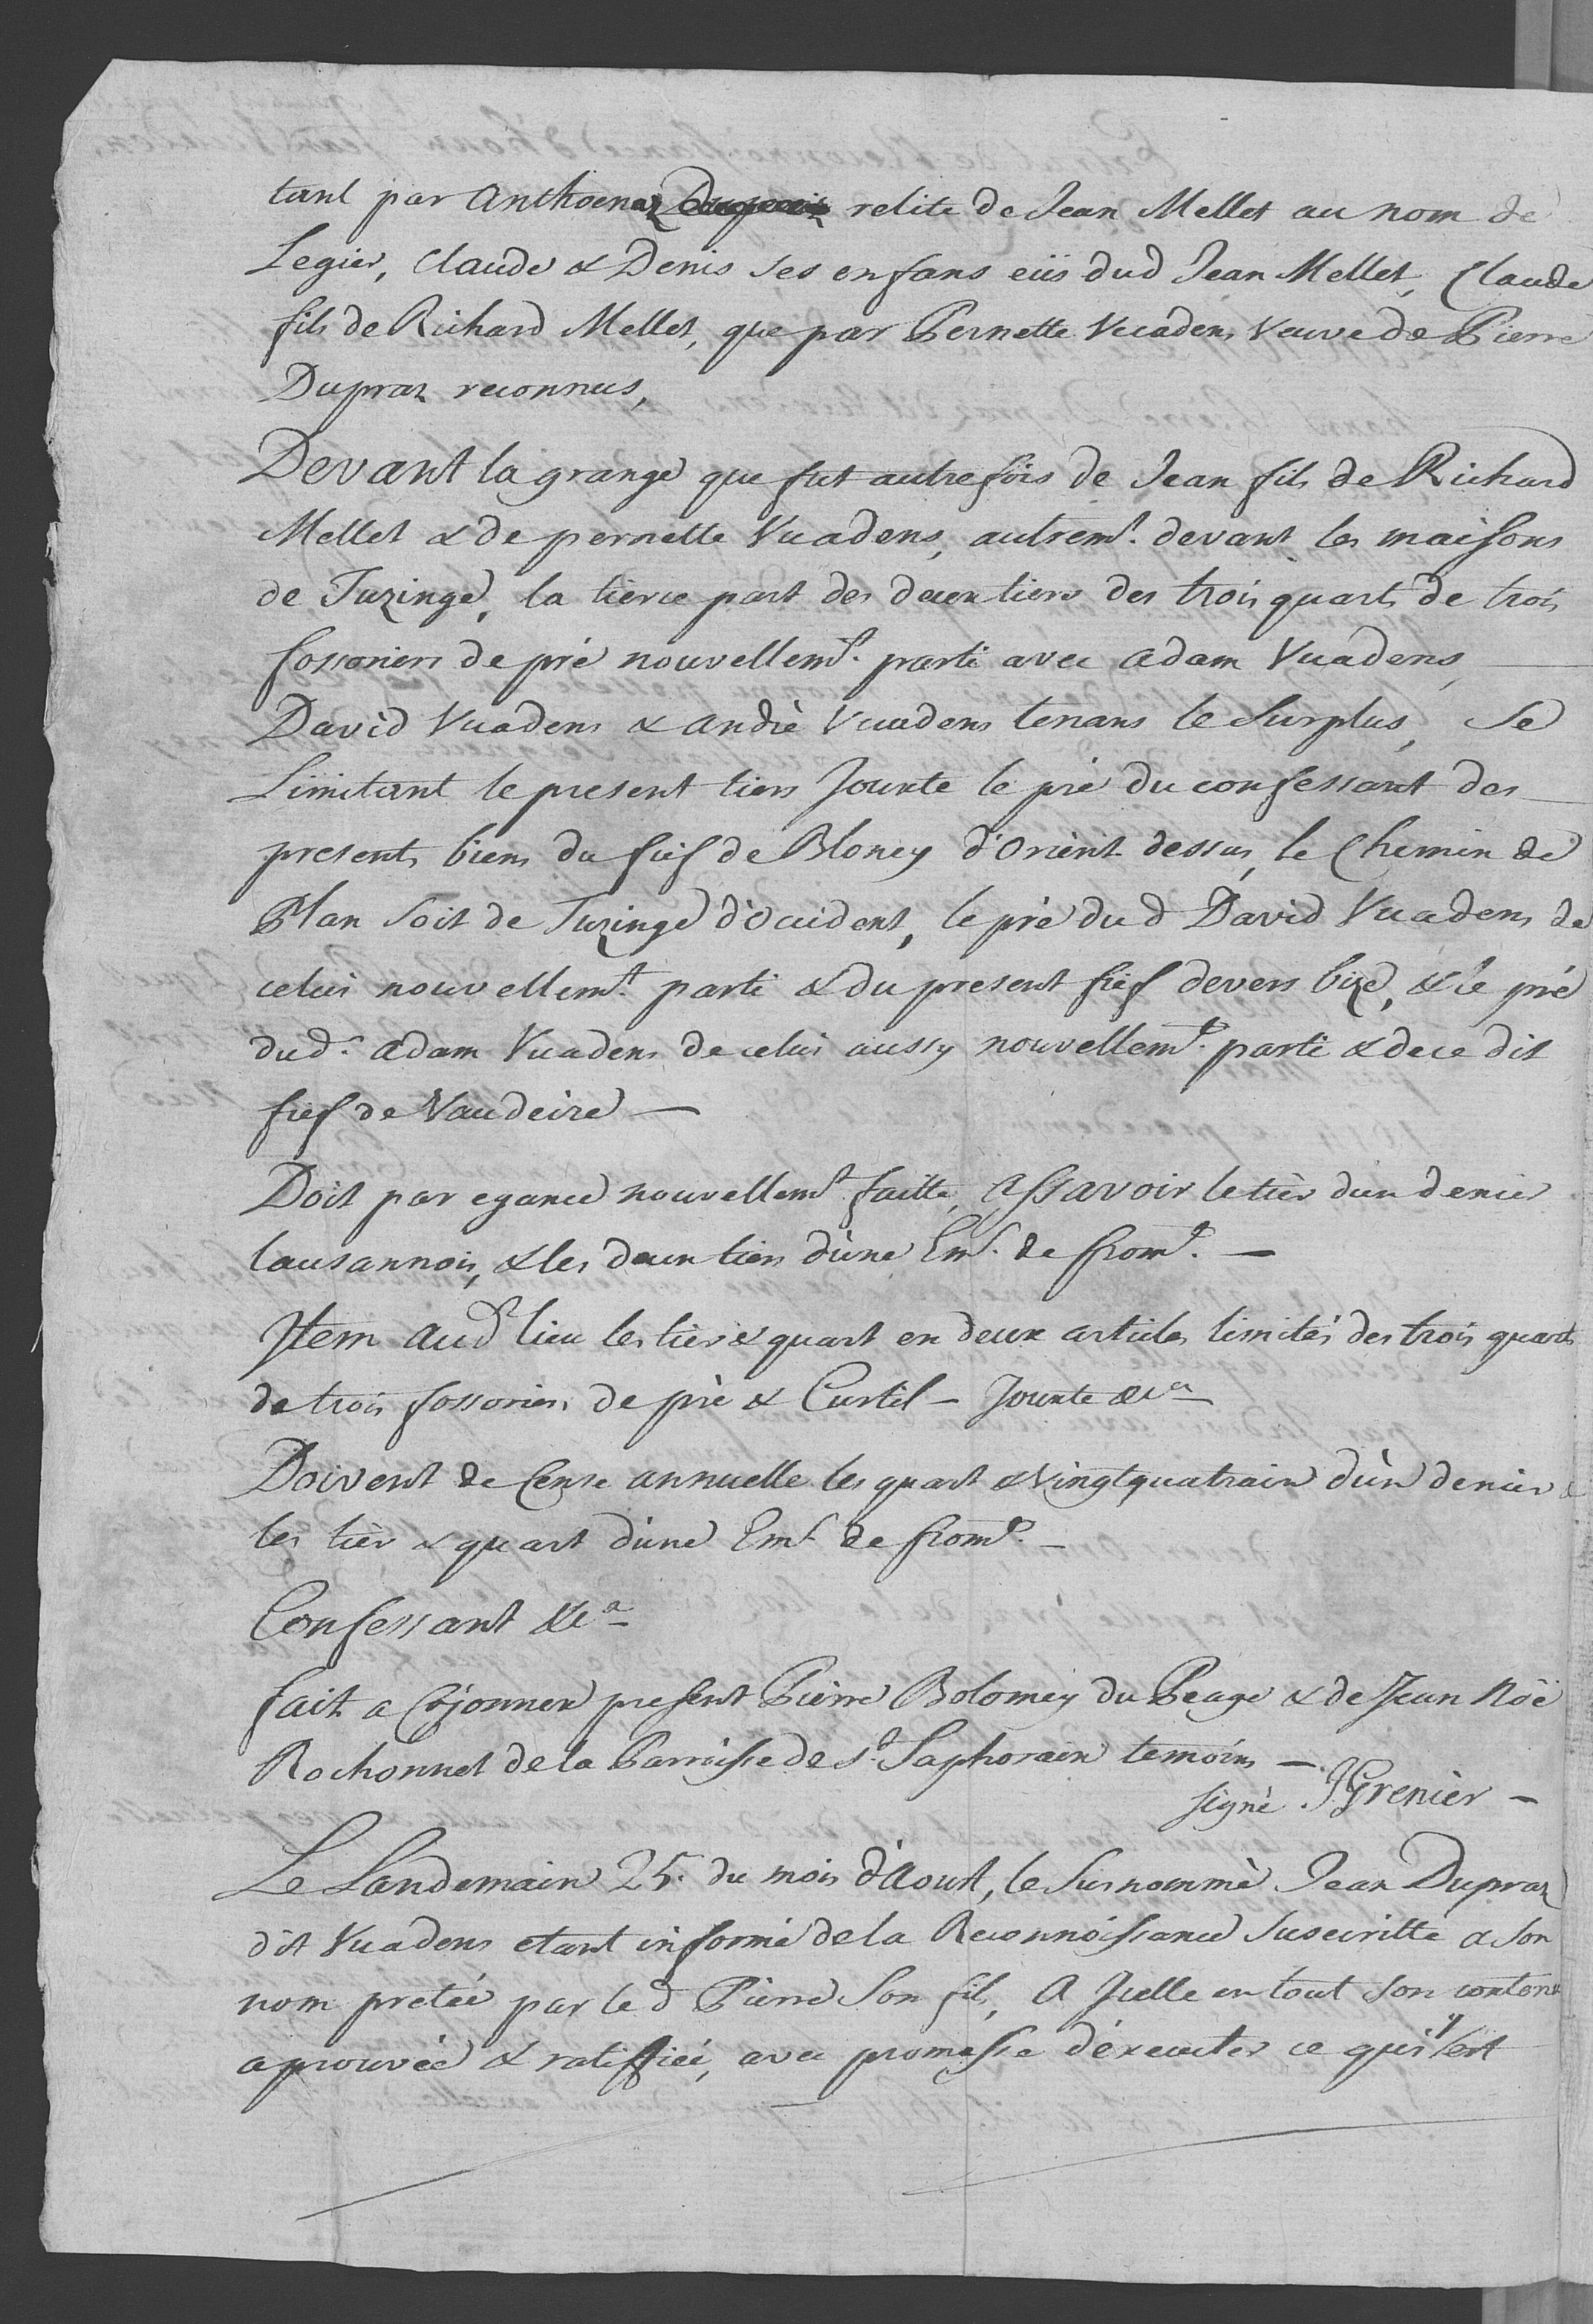 tant par Anthoenaz relite de Jean Mellet au nom de
Legier, Claude & Denis ses enfans eüs dud Jean Mellet, Claude
fils de Richard Mellet, que par Pernette Vuadens Veuve de Pierre
Dupraz reconnus,
Devant la grange que fut autrefois de Jean fils de Richard
Mellet & de pernette Vuadens, autremt. devant les maisons
de Tuzinge, la tierce part des deux tiers des trois quarts de trois
fossoriers de pré nouvellemt. parti avec Adam Vuadens,
David Vuadens & André Vuadens tenans le Surplus, Se
Limitant le present tiers Jouxte le pré du confessant des
presents biens du fief de Bloney d'Orient dessus, le Chemin de
Plan soit de Tuzinge d'Occident, le pré dud David Vuadens de
celui nouvellemt. parti & du present fief devers bize, & le pré
dud. Adam Vuadens de celui aussy nouvellemt. parti & de ce dit
fief de Vaudeire —
Doit par egance nouvellemt. faitte, assavoir le tiers d'un denier
lausannois, & les deux tiers d'une Emt. de fromt. —
Item aud. lieu les tiers & quart en deux articles limités des trois quarts
de trois fossoriers de pré & Curtil - Jouxte &ca
Doivent de Cense annuelle les quart & vingtquatrain d'un denier &
les tiers & quart d'une Emt. de fromt. —
Confessant &ca
fait a present Pierre Bolomey du Peage & de Jean Noë
Rochonnet de la Parroisse de St. Saphorain temoins —
signé JGrenier —
Le Landemain 25. du mois d'Aoust, le Susnommé Jean Dupraz
dit Vuadens etant informé de la Reconnoissance suscritte a son
nom pretée par led Pierre Son fils, A Icelle en tout son contenu
aprouvée & ratiffiée, avec promesse d'executer ce qui y est